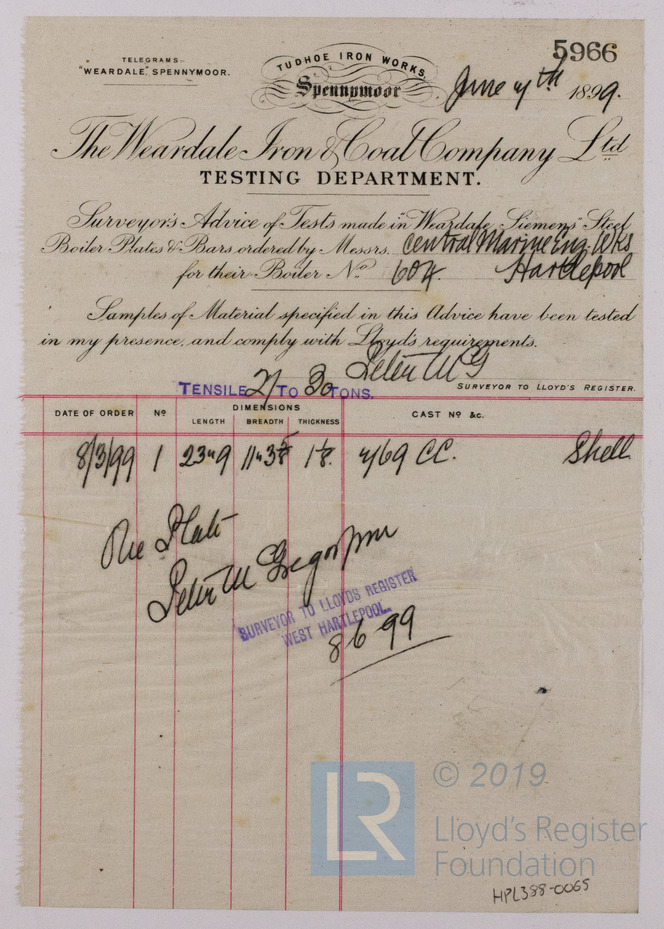 5966
TELEGRAMS:-
"WEARDALE," SPENNYMOOR.
TUDHOE IRON WORKS,
Spennymoor
June 7th 1899.
The Weardale Iron & Coal Company Ltd
TESTING DEPARTMENT.
Surveyor's Advice of Tests made in "Weardale Siemens" Steel
Boiler Plates & Bars ordered by Messrs. Central Marine Eng. Wks
for their Boiler No. 604. Hartlepool
Samples of Material specified in this Advice have been tested
in my presence, and comply with Lloyd's requirements.
Peter McG
SURVEYOR TO LLOYD'S REGISTER.
TENSILE 27 TO 30 TONS.
DATE OF ORDER No DIMENSIONS CAST Nos &c.
LENGTH BREADTH THICKNESS
8/3/99 1 23"9 11"3 1 1/8. 4169 CC. Shell
One Plate
Peter McGregor
SURVEYOR TO LLOYD'S REGISTER
WEST HARTLEPOOL.
8 6 99
LR
© 2019
Lloyd's Register
Foundation
HPL388-0065